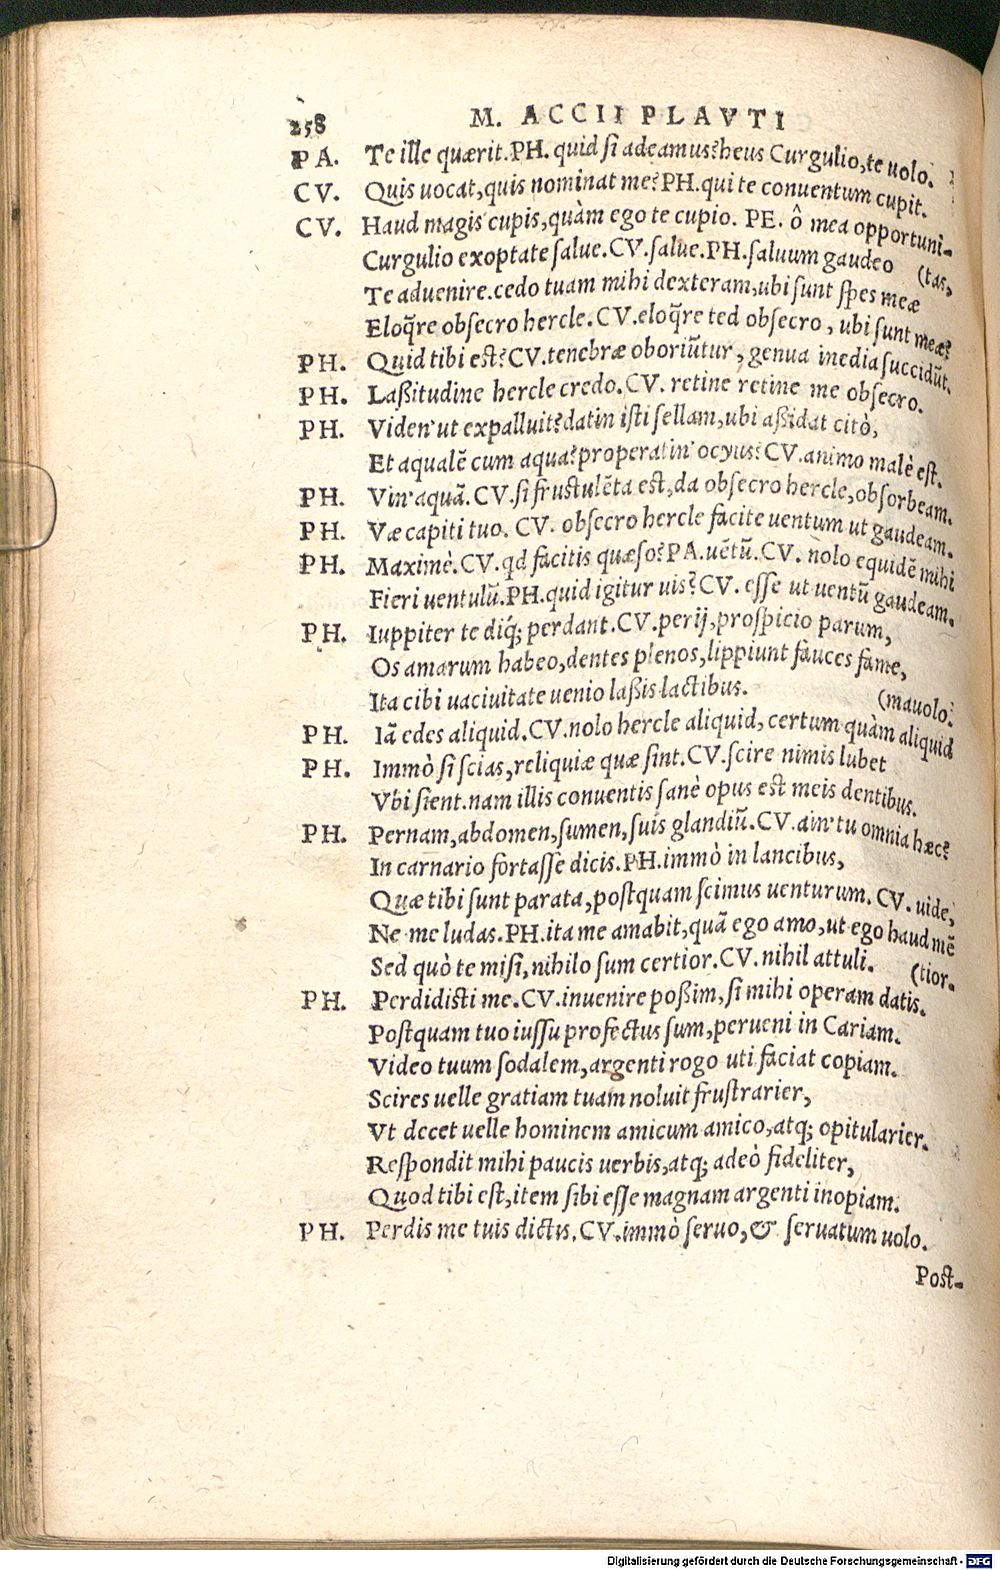 258 M. ACCII PLAVTI
PA. Te ille quærit. PH. quid si adeamus? heus Curgulio, te uolo.
CV. Quis uocat, quis nominat me? PH. qui te conuentum cupit.
CV. Haud magis cupis, quàm ego te cupio. PE. ô mea opportuni-
Curgulio exoptate salue. CV. salue. PH. saluum gaudeo (tas,
Te aduenire. cedo tuam mihi dexteram, ubi sunt spes meæ
Eloq̃re obsecro hercle. CV. eloq̃re ted obsecro, ubi sunt meæ?
PH. Quid tibi est? CV. tenebræ oboriũtur, genua inedia succidũt.
PH. Laßitudine hercle credo. CV. retine retine me obsecro.
PH. Viden' ut expalluit? datin isti sellam, ubi aßidat citò,
Et aqualẽ cum aqua? properatin' ocyus? CV. animo malè est.
PH. Vin' aquã. CV. si frustulẽta est, da obsecro hercle, obsorbeam.
PH. Væ capiti tuo. CV. obsecro hercle facite uentum ut gaudeam.
PH. Maximè. CV. qd facitis quæso? PA. uẽtũ. CV. nolo equidẽ mihi
Fieri uentulũ. PH. quid igitur uis? CV. esse ut uentũ gaudeam.
PH. Iuppiter te diq́; perdant. CV. perij, prospicio parum,
Os amarum habeo, dentes plenos, lippiunt fauces fame,
Ita cibi uaciuitate uenio laßis lactibus. (mauolo.
PH. Iã edes aliquid. CV. nolo hercle aliquid, certum quàm aliquid
PH. Immò si scias, reliquiæ quæ sint. CV. scire nimis lubet
Vbi sient. nam illis conuentis sanè opus est meis dentibus.
PH. Pernam, abdomen, sumen, suis glandiũ. CV. ain' tu omnia hæc?
In carnario fortasse dicis. PH. immò in lancibus,
Quæ tibi sunt parata, postquam scimus uenturum. CV. uide,
Ne me ludas. PH. ita me amabit, quã ego amo, ut ego haud mẽ
Sed quò te misi, nihilo sum certior. CV. nihil attuli. (tior.
PH. Perdidisti me. CV. inuenire poßim, si mihi operam datis.
Postquam tuo iussu profectus sum, perueni in Cariam.
Video tuum sodalem, argenti rogo uti faciat copiam.
Scires uelle gratiam tuam noluit frustrarier,
Vt decet uelle hominem amicum amico, atq; opitularier.
Respondit mihi paucis uerbis, atq; adeò fideliter,
Quod tibi est, item sibi esse magnam argenti inopiam.
PH. Perdis me tuis dictis. CV. immò seruo, & seruatum uolo.
Post-
Digitalisierung gefördert durch die Deutsche Forschungsgemeinschaft - DFG